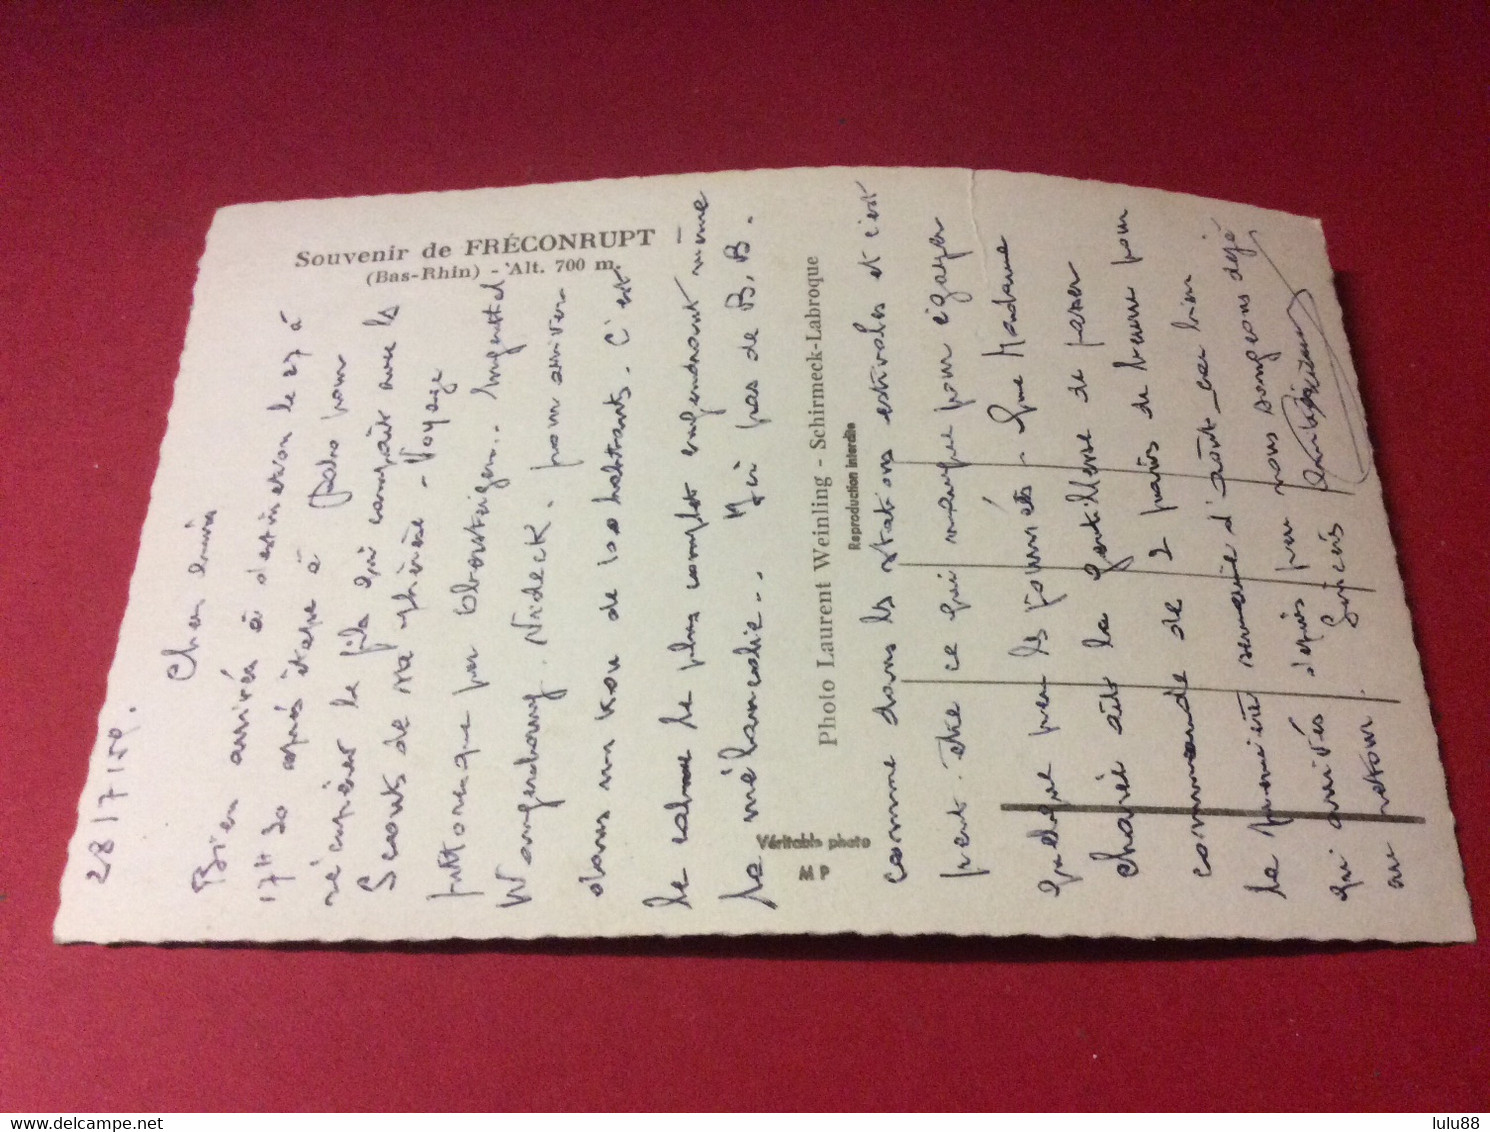 Souvenir de FRÉCONRUPT
(Bas-Rhin) - Alt. 700 m.
28/7/59.
Chers amis
Bien arrivés à destination le 27 à
17h 30 après étape à pour
récupérer le fils qui campait avec les
Scouts de sa - Voyage
pittoresque par Obersteigen..
Wangenbourg. Nideck. pour arriver
dans un trou de 100 habitants. C'est
le calme le plus complet engendrant même
la mélancolie.. Ici pas de B.B.
Photo Laurent Weinling - Schirmeck-Labroque
Reproduction interdite
Véritable photo
MP
comme dans les stations estivales et c'est
peut-être ce qui manque pour égayer
quelque peu les journées - Que Madame
ait la gentillesse de passer
commande de 2 pains de beurre pour
la première semaine d'août car bien
qu'arrivés depuis peu nous songeons déjà
au retour.
lulu88